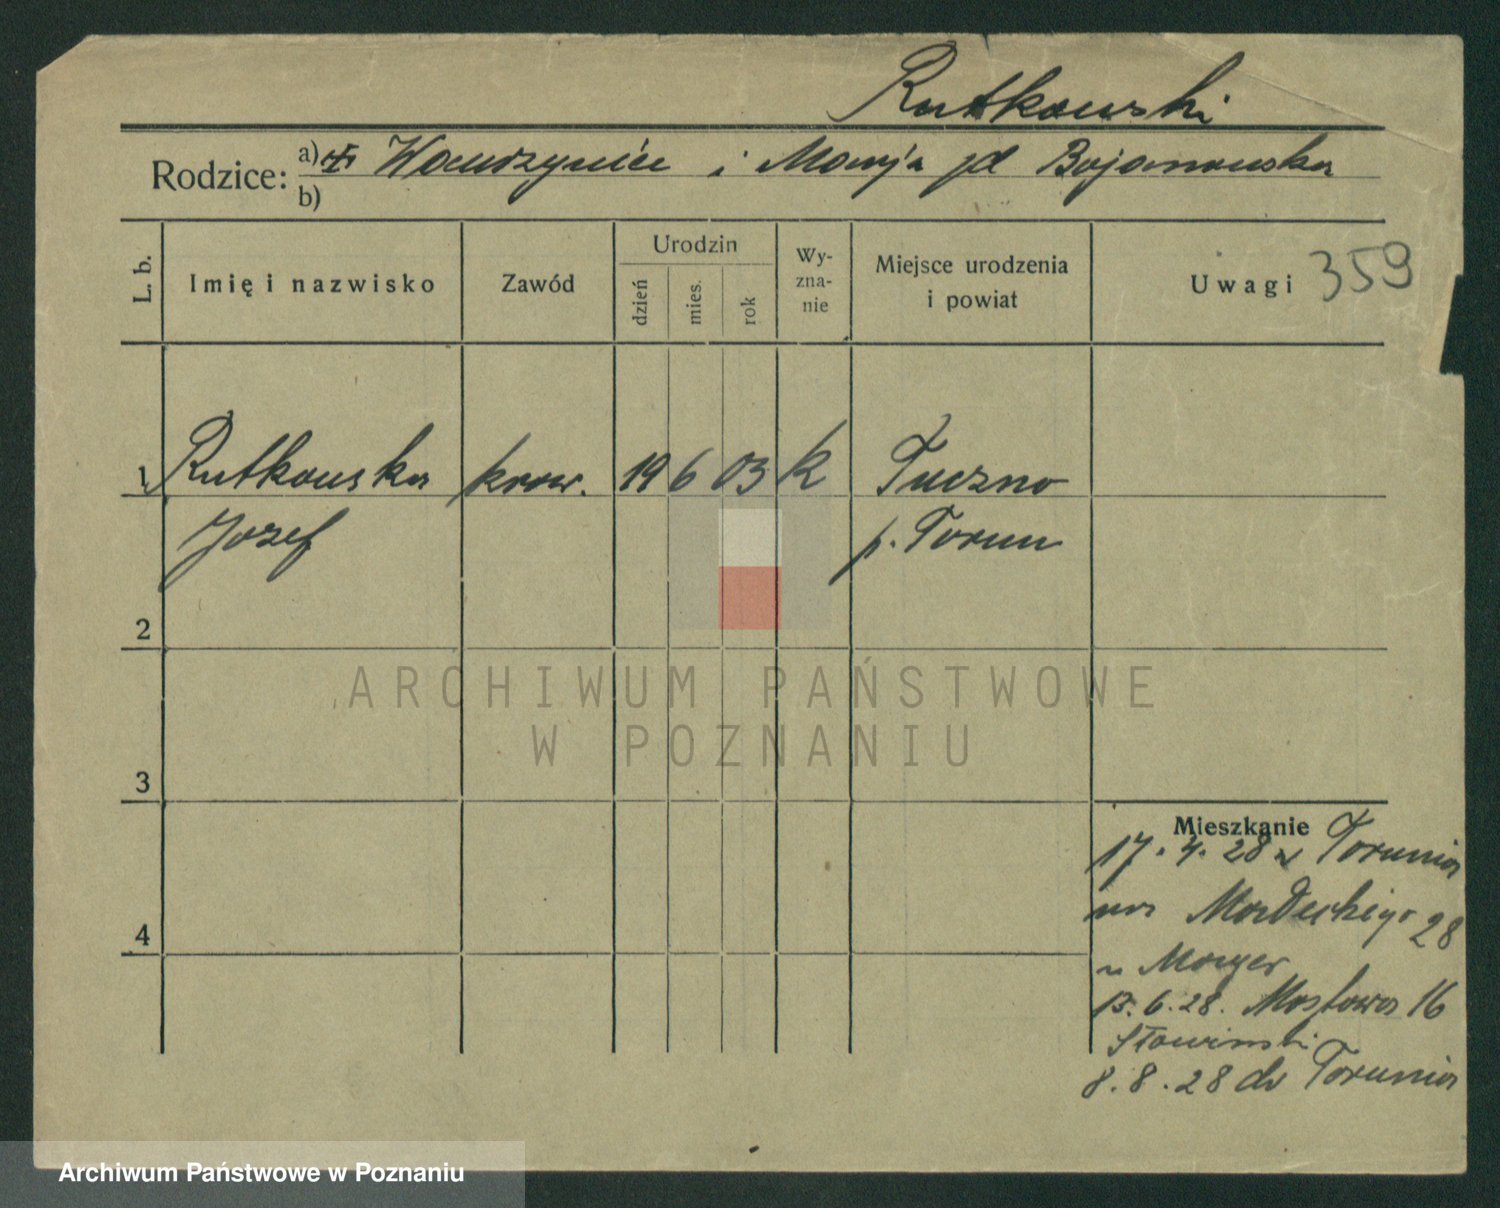 Rutkowski
Rodzice: a) Wawrzyniec i Marja pd Bojanowska
b)
L. b.
Imię i nazwisko
Zawód
Urodzin
dzień
mies.
rok
Wy-
zna-
nie
Miejsce urodzenia
i powiat
Uwagi 359
1 Rutkowska kraw. 19 6 03 k Tuczno
Jozef p. Torun
2
3
4
Mieszkanie
17. 4. 28 z Torunia
28
13. 6. 28. Mostowa 16
Sławinski
8. 8. 28 do Torunia
ARCHIWUM PAŃSTWOWE
W POZNANIU
Archiwum Państwowe w Poznaniu